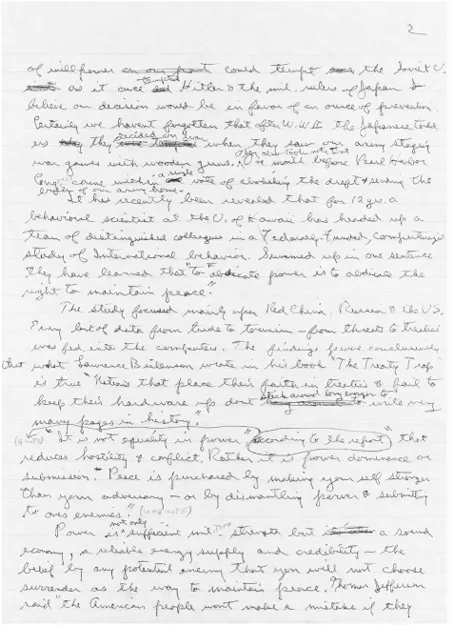 2
of will power could tempt the Soviet U.
as it once tempted Hitler & the mil. rulers of Japan I
believe our decision would be in favor of an ounce of prevention.
Certainly we haven't forgotten that after W.W.II the Japanese told
us they decided on war when they saw our army staging
war games with wooden guns. They also took note that one month before Pearl Harbor
Cong. came within a single vote of abolishing the draft & sending the
bulk of our army home.
It has recently been revealed that for 12 yrs. a
behavioral scientist at the U. of Hawaii has headed up a
team of distinguished colleagues in a Federally-funded, computerized
study of International behavior. Summed up in one sentence
they have learned that "to abdicate power is to abdicate the
right to maintain peace."
The study focused mainly upon Red China, Russia & the U.S.
Every bit of data from trade to tourism - from threats to treaties
was fed into the computers. The findings prove conclusively
that what Laurence Beilenson wrote in his book "The Treaty Trap"
is true "Nations that place their faith in treaties & fail to
keep their hardware up don't stick around long enough to write very
many pages in history."
"It is not equality in power" (according to the report) "that
reduces hostility & conflict. Rather it is power dominance or
submission." Peace is purchased by making yourself stronger
than your adversary - or by dismantling power & submitting
to ones enemies."
Power is not only sufficient mil. strength but a sound
economy, a reliable energy supply and credibility - the
belief by any potential enemy that you will not choose
surrender as the way to maintain peace. Thomas Jefferson
said "the American people wont make a mistake if they